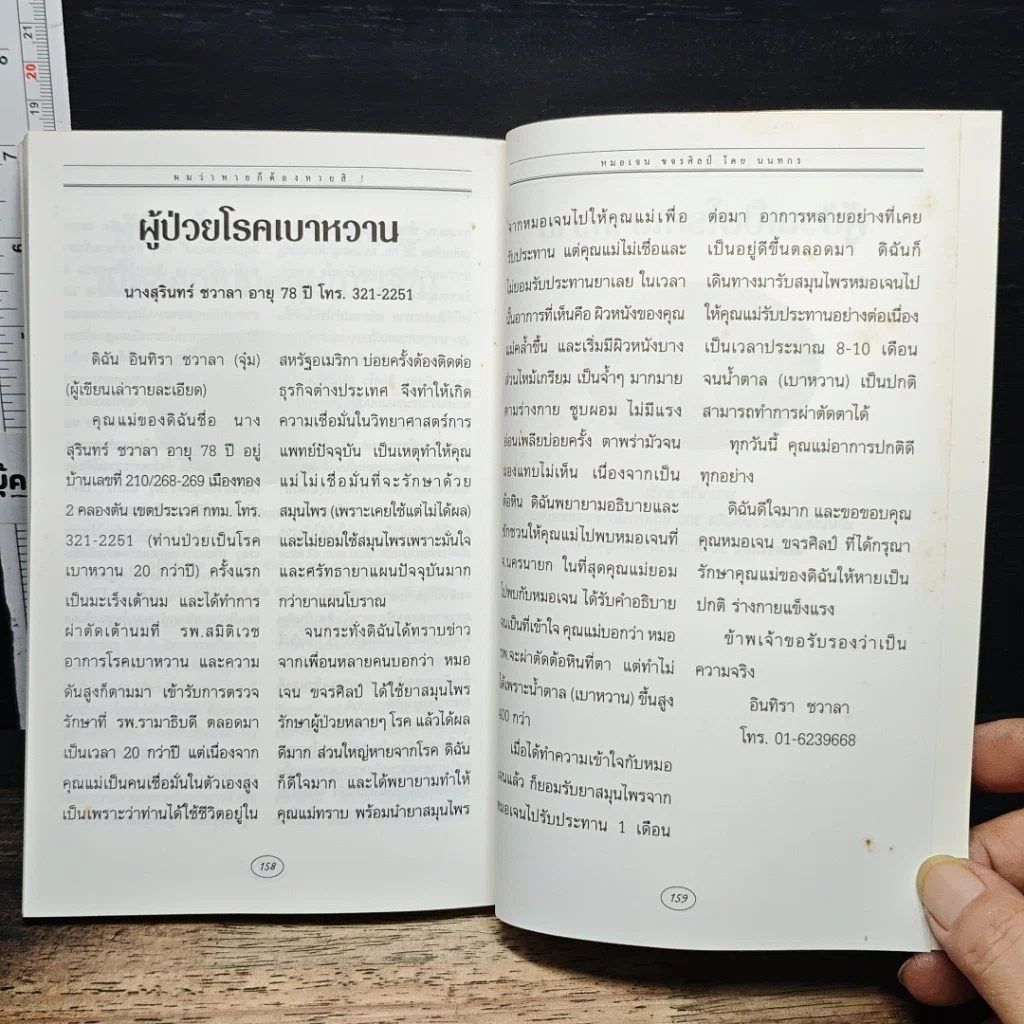 21
20
19
7
ผมว่าหายก็ต้องหายสิ !
ผู้ป่วยโรคเบาหวาน
นางสุรินทร์ ชวาลา อายุ 78 ปี โทร. 321-2251
ดิฉัน อินทิรา ชวาลา (จุ๋ม)
(ผู้เขียนเล่ารายละเอียด)
คุณแม่ของดิฉันชื่อ นาง
สุรินทร์ ชวาลา อายุ 78 ปี อยู่
บ้านเลขที่ 210/268-269 เมืองทอง
2 คลองตัน เขตประเวศ กทม. โทร.
321-2251 (ท่านป่วยเป็นโรค
เบาหวาน 20 กว่าปี) ครั้งแรก
เป็นมะเร็งเต้านม และได้ทำการ
ผ่าตัดเต้านมที่ รพ.สมิติเวช
อาการโรคเบาหวาน และความ
ดันสูงก็ตามมา เข้ารับการตรวจ
รักษาที่ รพ.รามาธิบดี ตลอดมา
เป็นเวลา 20 กว่าปี แต่เนื่องจาก
คุณแม่เป็นคนเชื่อมั่นในตัวเองสูง
เป็นเพราะว่าท่านได้ใช้ชีวิตอยู่ใน
สหรัฐอเมริกา บ่อยครั้งต้องติดต่อ
ธุรกิจต่างประเทศ จึงทำให้เกิด
ความเชื่อมั่นในวิทยาศาสตร์การ
แพทย์ปัจจุบัน เป็นเหตุทำให้คุณ
แม่ไม่เชื่อมั่นที่จะรักษาด้วย
สมุนไพร (เพราะเคยใช้แต่ไม่ได้ผล)
และไม่ยอมใช้สมุนไพรเพราะมั่นใจ
และศรัทธายาแผนปัจจุบันมาก
กว่ายาแผนโบราณ
จนกระทั่งดิฉันได้ทราบข่าว
จากเพื่อนหลายคนบอกว่า หมอ
เจน ขจรศิลป์ ได้ใช้ยาสมุนไพร
รักษาผู้ป่วยหลายๆ โรค แล้วได้ผล
ดีมาก ส่วนใหญ่หายจากโรค ดิฉัน
ก็ดีใจมาก และได้พยายามทำให้
คุณแม่ทราบ พร้อมนำยาสมุนไพร
158
หมอเจน ขจรศิลป์ โดย นนทกร
จากหมอเจนไปให้คุณแม่เพื่อ
รับประทาน แต่คุณแม่ไม่เชื่อและ
ไม่ยอมรับประทานยาเลย ในเวลา
นั้นอาการที่เห็นคือ ผิวหนังของคุณ
แม่คล้ำขึ้น และเริ่มมีผิวหนังบาง
ส่วนไหม้เกรียม เป็นจ้ำๆ มากมาย
ตามร่างกาย ซูบผอม ไม่มีแรง
อ่อนเพลียบ่อยครั้ง ตาพร่ามัวจน
มองแทบไม่เห็น เนื่องจากเป็น
ต้อหิน ดิฉันพยายามอธิบายและ
ชักชวนให้คุณแม่ไปพบหมอเจนที่
จ.นครนายก ในที่สุดคุณแม่ยอม
ไปพบกับหมอเจน ได้รับคำอธิบาย
จนเป็นที่เข้าใจ คุณแม่บอกว่า หมอ
รพ.จะผ่าตัดต้อหินที่ตา แต่ทำไม่
ได้เพราะน้ำตาล (เบาหวาน) ขึ้นสูง
400 กว่า
เมื่อได้ทำความเข้าใจกับหมอ
เจนแล้ว ก็ยอมรับยาสมุนไพรจาก
หมอเจนไปรับประทาน 1 เดือน
ต่อมา อาการหลายอย่างที่เคย
เป็นอยู่ดีขึ้นตลอดมา ดิฉันก็
เดินทางมารับสมุนไพรหมอเจนไป
ให้คุณแม่รับประทานอย่างต่อเนื่อง
เป็นเวลาประมาณ 8-10 เดือน
จนน้ำตาล (เบาหวาน) เป็นปกติ
สามารถทำการผ่าตัดตาได้
ทุกวันนี้ คุณแม่อาการปกติดี
ทุกอย่าง
ดิฉันดีใจมาก และขอขอบคุณ
คุณหมอเจน ขจรศิลป์ ที่ได้กรุณา
รักษาคุณแม่ของดิฉันให้หายเป็น
ปกติ ร่างกายแข็งแรง
ข้าพเจ้าขอรับรองว่าเป็น
ความจริง
อินทิรา ชวาลา
โทร. 01-6239668
159